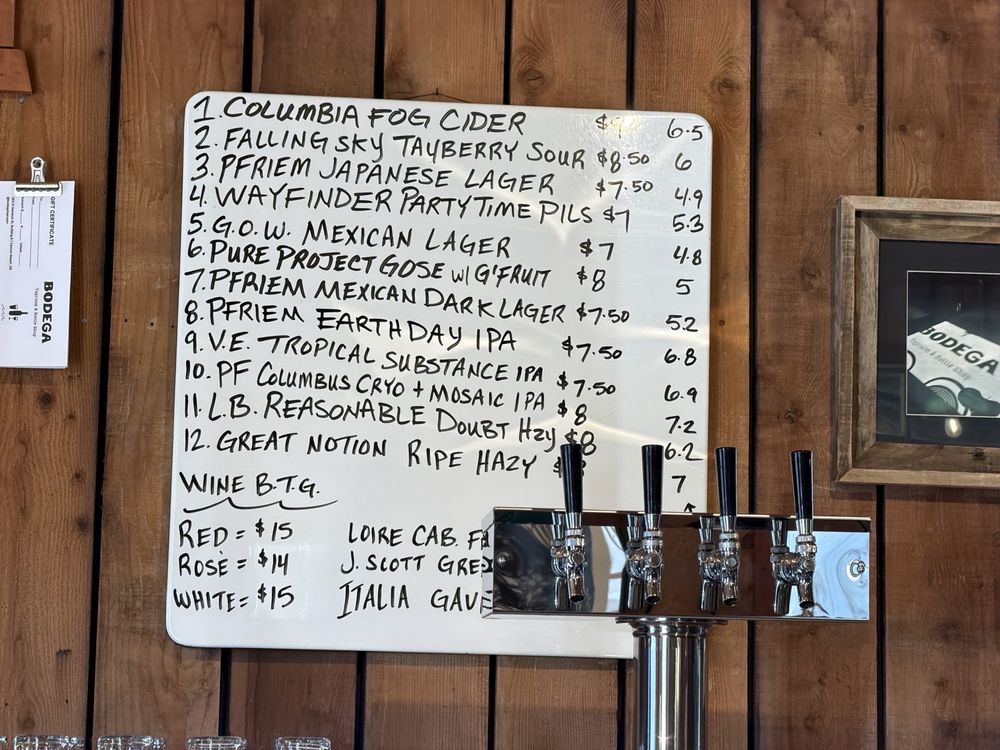 1. COLUMBIA FOG CIDER 6.5
2. FALLING SKY TAYBERRY SOUR $8.50 6
3. PFRIEM JAPANESE LAGER $7.50 4.9
4. WAYFINDER PARTY TIME PILS $7 5.3
5. G.O.W. MEXICAN LAGER $7 4.8
6. PURE PROJECT GOSE w/ G'FRUIT $8 5
7. PFRIEM MEXICAN DARK LAGER $7.50 5.2
8. PFRIEM EARTH DAY IPA $7.50 6.8
9. V.E. TROPICAL SUBSTANCE IPA $7.50 6.9
10. PF COLUMBUS CRYO + MOSAIC IPA $8 7.2
11. L.B. REASONABLE DOUBT Hzy $8 6.2
12. GREAT NOTION RIPE HAZY 7
WINE B.T.G.
RED = $15 LOIRE CAB. F
ROSÈ = $14 J. SCOTT GRE
WHITE = $15 ITALIA GAV
GIFT CERTIFICATE
BODEGA
Taproom & Bottle Shop
BODEGA
Taproom & Bottle Shop